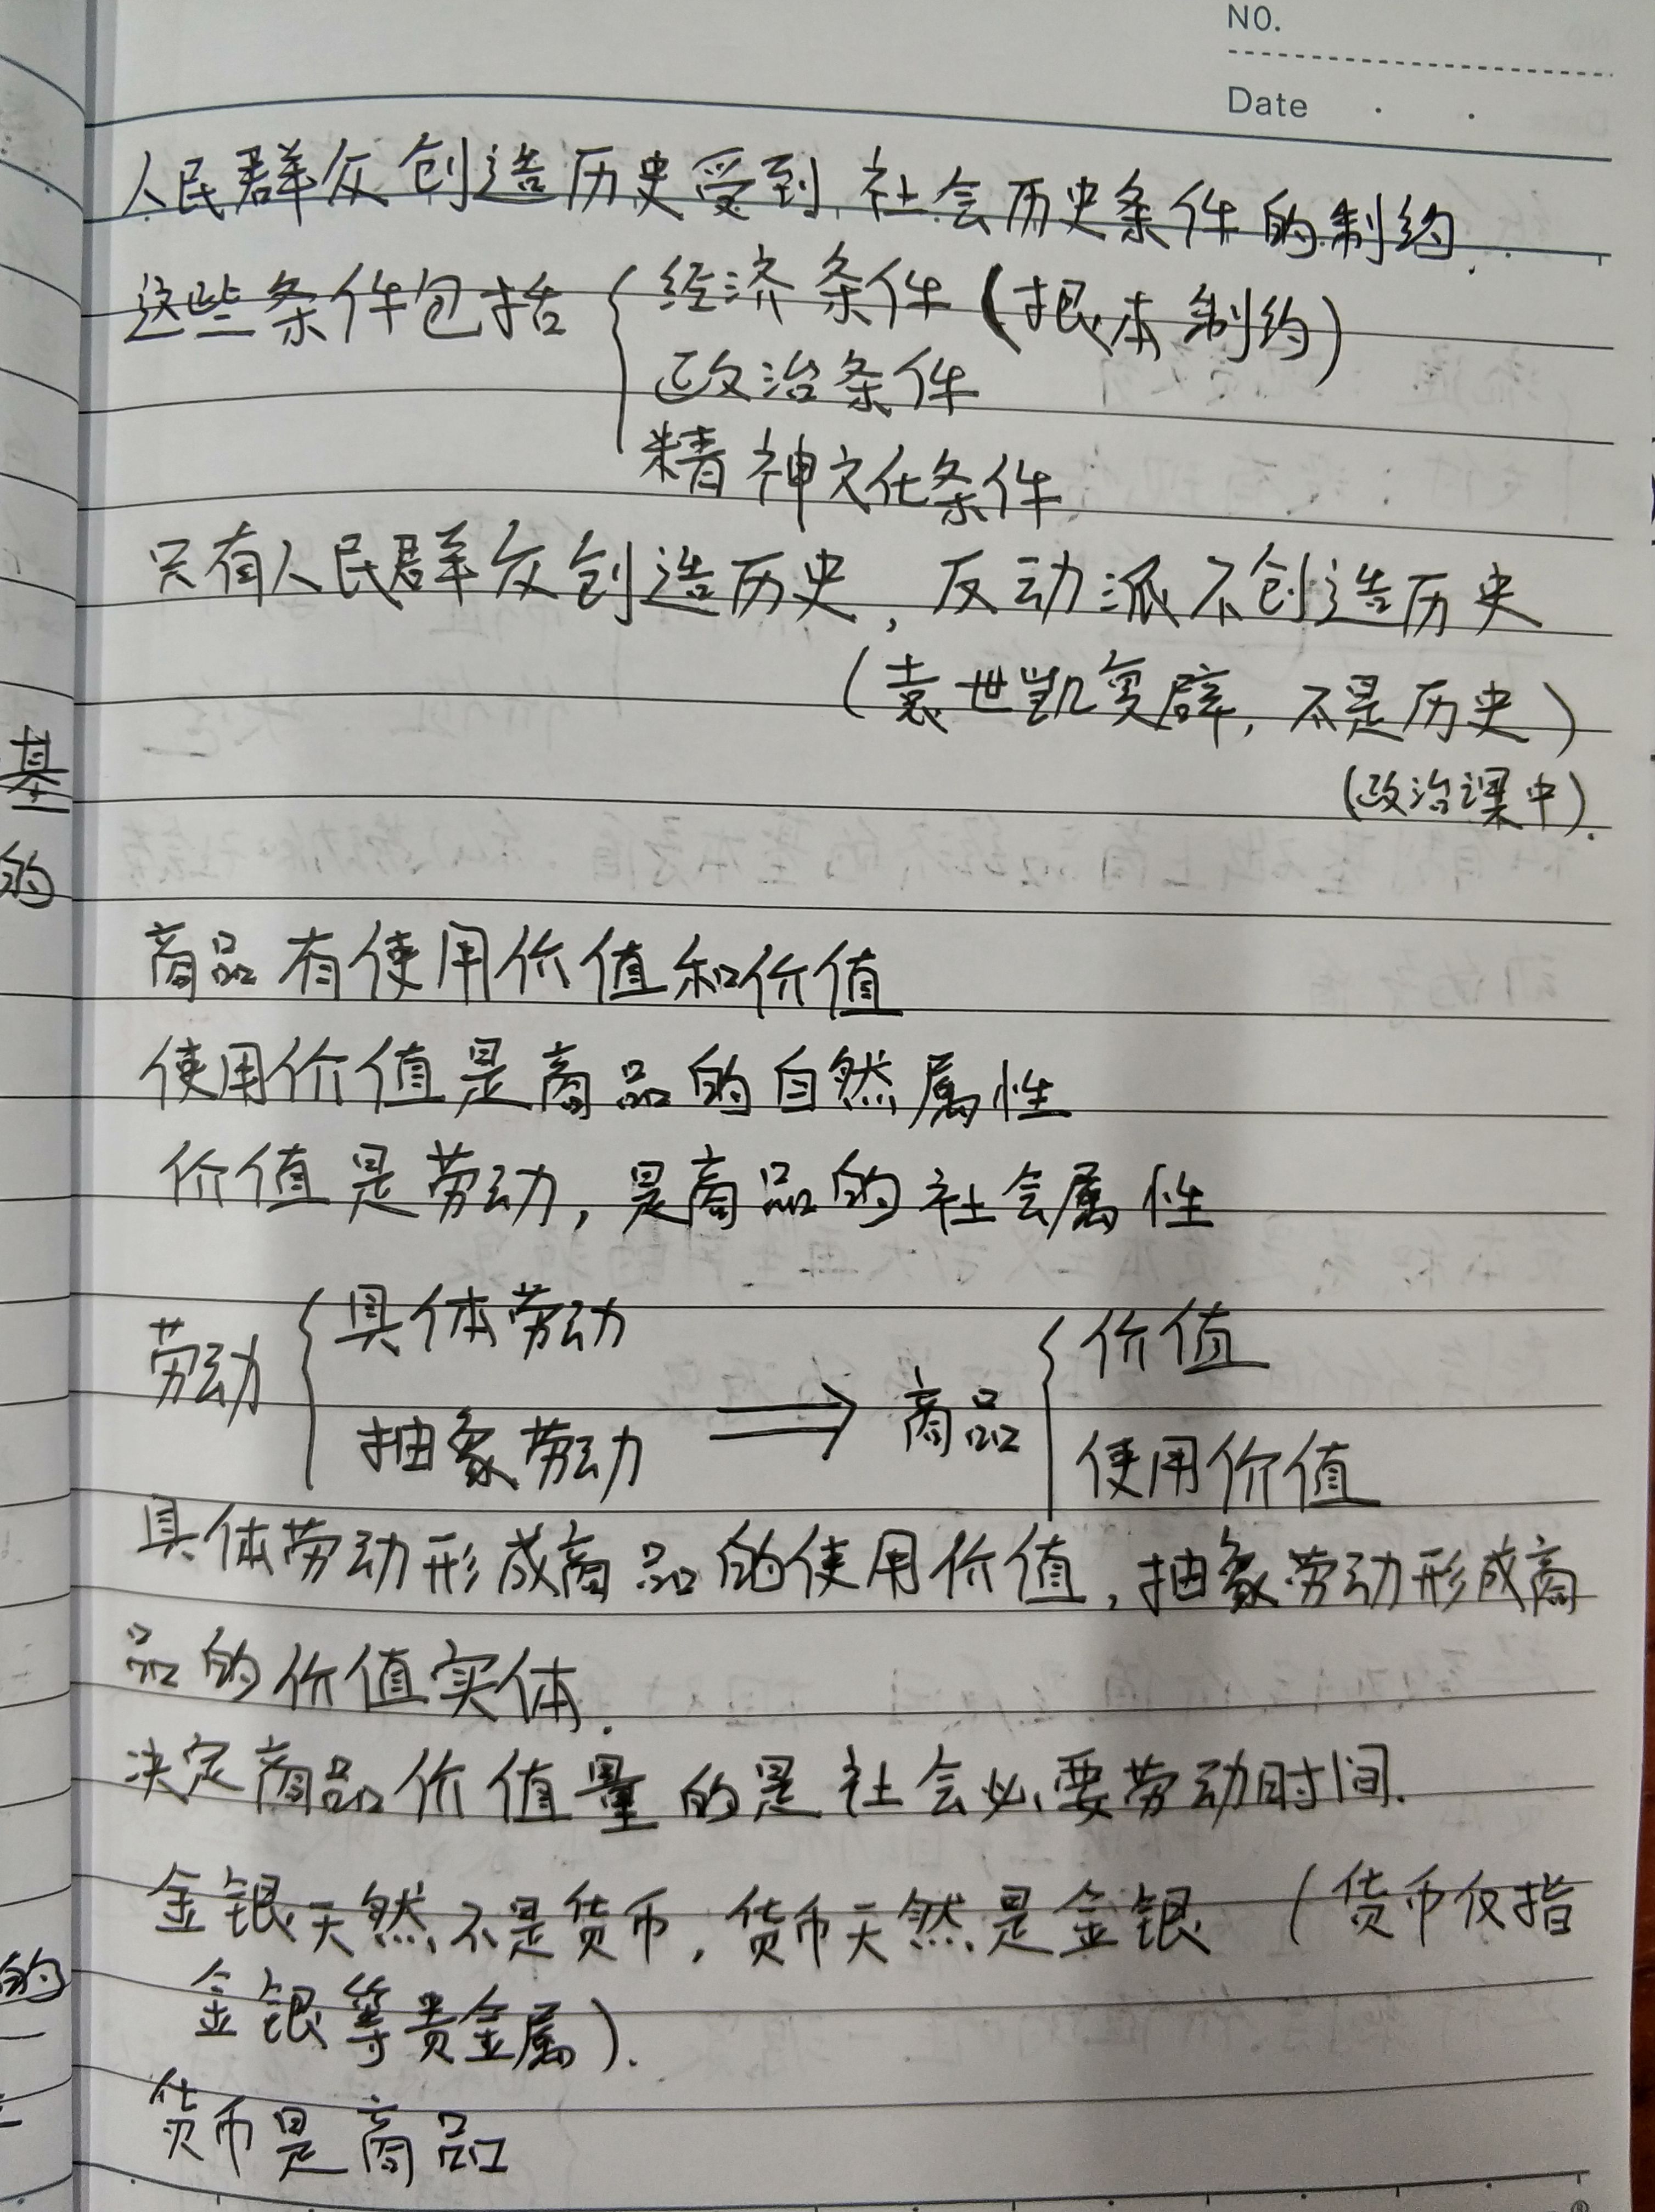 NO.
Date
人民群众创造历史受到社会历史条件的制约.
这些条件包括 { 经济条件 (根本制约)
政治条件
精神文化条件
只有人民群众创造历史, 反动派不创造历史
(袁世凯复辟, 不是历史)
(政治课中).
基
的
商品有使用价值和价值
使用价值是商品的自然属性
价值是劳动, 是商品的社会属性
劳动 { 具体劳动
抽象劳动 ⟹ 商品 { 价值
使用价值
具体劳动形成商品的使用价值, 抽象劳动形成商
品的价值实体.
决定商品价值量的是社会必要劳动时间.
金银天然不是货币, 货币天然是金银 (货币仅指
金银等贵金属).
的
货币是商品